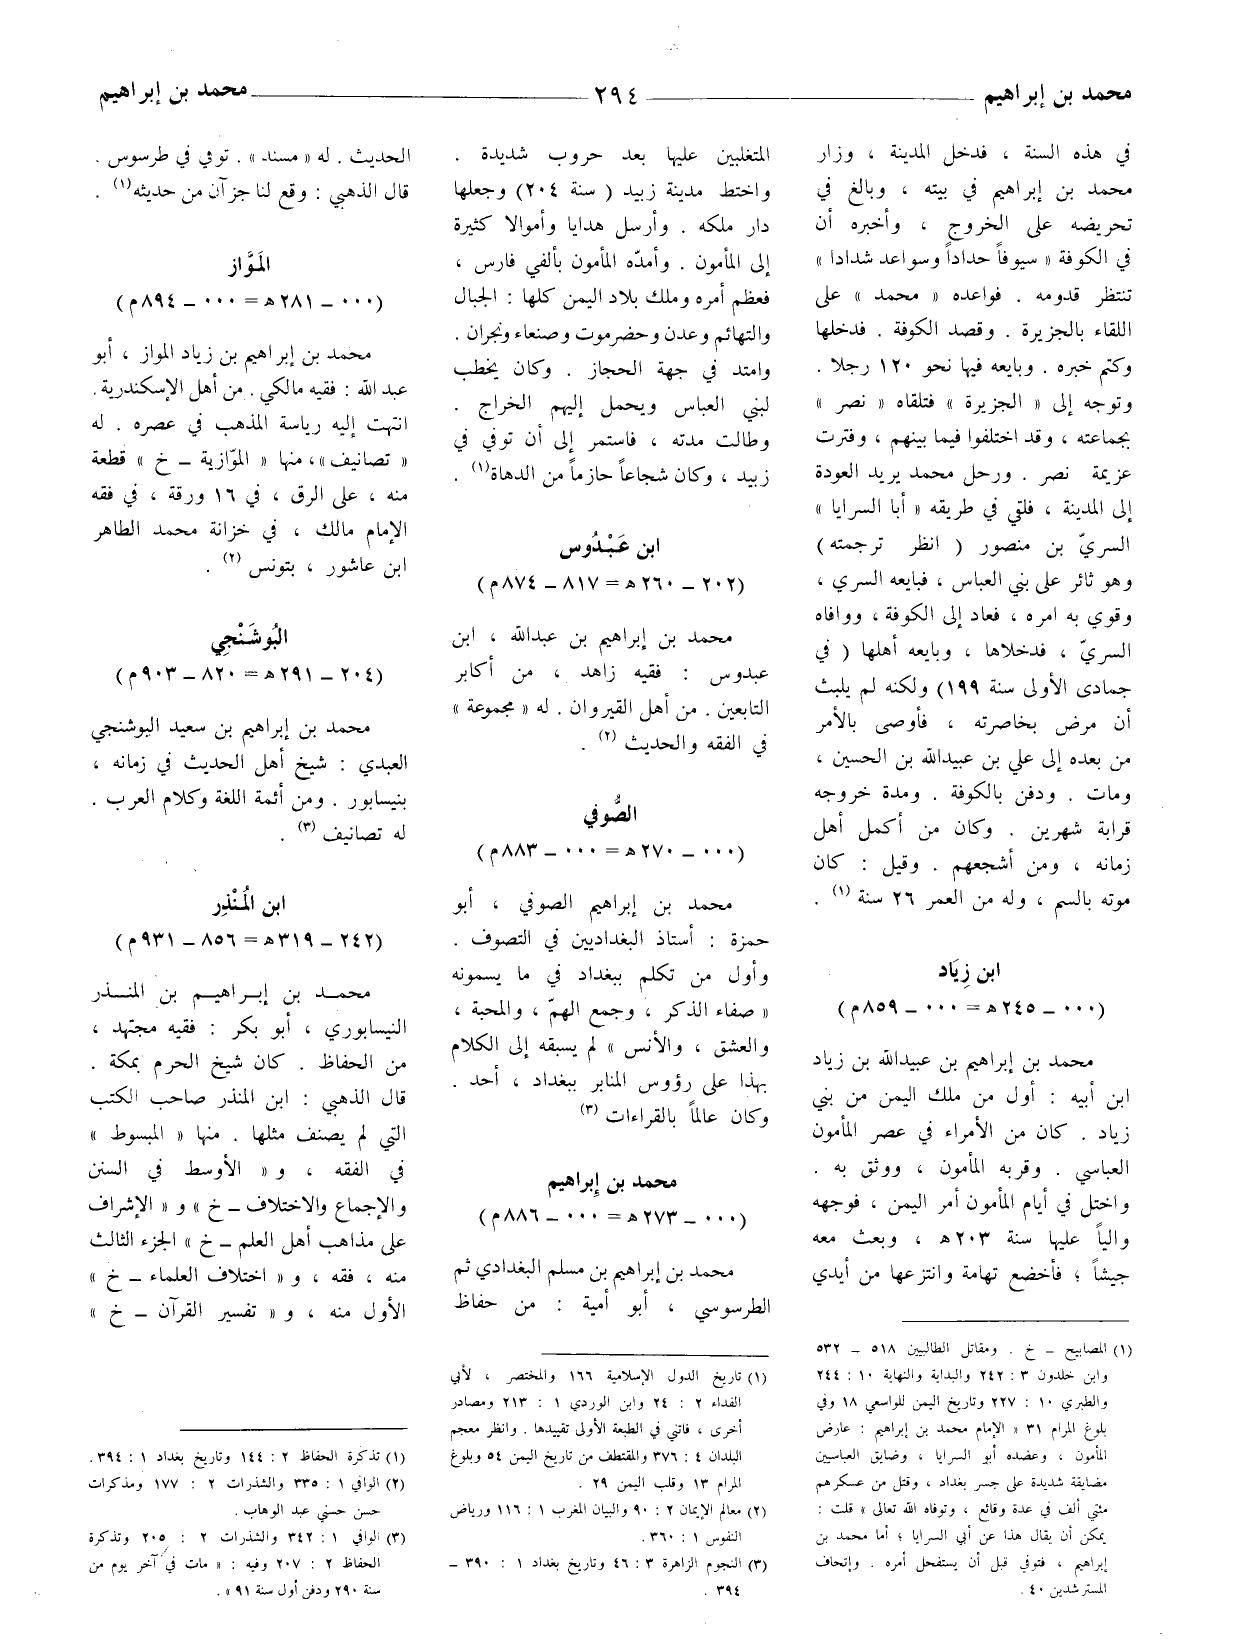 محمد بن إبراهيم ــــــ ٢٩٤ ــــــ محمد بن إبراهيم
في هذه السنة ، فدخل المدينة ، وزار
محمد بن إبراهيم في بيته ، وبالغ في
تحريضه على الخروج ، وأخبره أن
في الكوفة « سيوفاً حداداً وسواعد شدادا »
تنتظر قدومه . فواعده « محمد » على
اللقاء بالجزيرة . وقصد الكوفة . فدخلها
وكتم خبره . وبايعه فيها نحو ١٢٠ رجلا .
وتوجه إلى « الجزيرة » فتلقاه « نصر »
بجماعته ، وقد اختلفوا فيما بينهم ، وفترت
عزيمة نصر . ورحل محمد يريد العودة
إلى المدينة ، فلقي في طريقه « أبا السرايا »
السريّ بن منصور ( انظر ترجمته )
وهو ثائر على بني العباس ، فبايعه السري ،
وقوي به امره ، فعاد إلى الكوفة ، ووافاه
السريّ ، فدخلاها ، وبايعه أهلها ( في
جمادى الأولى سنة ١٩٩) ولكنه لم يلبث
أن مرض بخاصرته ، فأوصى بالأمر
من بعده إلى علي بن عبيدالله بن الحسين ،
ومات . ودفن بالكوفة . ومدة خروجه
قرابة شهرين . وكان من أكمل أهل
زمانه ، ومن أشجعهم . وقيل : كان
موته بالسم ، وله من العمر ٢٦ سنة (١) .
ابن زِيَاد
(٠٠٠ ــ ٢٤٥ ه = ٠٠٠ ــ ٨٥٩ م)
محمد بن إبراهيم بن عبيدالله بن زياد
ابن أبيه : أول من ملك اليمن من بني
زياد . كان من الأمراء في عصر المأمون
العباسي . وقربه المأمون ، ووثق به .
واختل في أيام المأمون أمر اليمن ، فوجهه
والياً عليها سنة ٢٠٣ ه ، وبعث معه
جيشاً ؛ فأخضع تهامة وانتزعها من أيدي
(١) المصابيح ــ خ . ومقاتل الطالبيين ٥١٨ ــ ٥٣٢
وابن خلدون ٣ : ٢٤٢ والبداية والنهاية ١٠ : ٢٤٤
والطبري ١٠ : ٢٢٧ وتاريخ اليمن للواسعي ١٨ وفي
بلوغ المرام ٣١ « الإمام محمد بن إبراهيم : عارض
المأمون ، وعضده أبو السرايا ، وضايق العباسيين
مضايقة شديدة على جسر بغداد ، وقتل من عسكرهم
مئتي ألف في عدة وقائع ، وتوفاه الله تعالى » قلت :
يمكن أن يقال هذا عن أبي السرايا ؛ أما محمد بن
إبراهيم ، فتوفي قبل أن يستفحل أمره . وإتحاف
المسترشدين ٤٠ .
المتغلبين عليها بعد حروب شديدة .
واختط مدينة زبيد ( سنة ٢٠٤) وجعلها
دار ملكه . وأرسل هدايا وأموالا كثيرة
إلى المأمون . وأمدّه المأمون بألفي فارس ،
فعظم أمره وملك بلاد اليمن كلها : الجبال
والتهائم وعدن وحضرموت وصنعاء ونجران .
وامتد في جهة الحجاز . وكان يخطب
لبني العباس ويحمل إليهم الخراج .
وطالت مدته ، فاستمر إلى أن توفي في
زبيد ، وكان شجاعاً حازماً من الدهاة(١) .
ابن عَبْدُوس
(٢٠٢ ــ ٢٦٠ ه = ٨١٧ ــ ٨٧٤ م)
محمد بن إبراهيم بن عبدالله ، ابن
عبدوس : فقيه زاهد ، من أكابر
التابعين . من أهل القيروان . له « مجموعة »
في الفقه والحديث (٢) .
الصُّوفي
(٠٠٠ ــ ٢٧٠ ه = ٠٠٠ ــ ٨٨٣ م)
محمد بن إبراهيم الصوفي ، أبو
حمزة : أستاذ البغداديين في التصوف .
وأول من تكلم ببغداد في ما يسمونه
« صفاء الذكر ، وجمع الهمّ ، والمحبة ،
والعشق ، والأنس » لم يسبقه إلى الكلام
بهذا على رؤوس المنابر ببغداد ، أحد .
وكان عالماً بالقراءات (٣)
محمد بن إبراهيم
(٠٠٠ ــ ٢٧٣ ه = ٠٠٠ ــ ٨٨٦ م)
محمد بن إبراهيم بن مسلم البغدادي ثم
الطرسوسي ، أبو أمية : من حفاظ
(١) تاريخ الدول الإسلامية ١٦٦ والمختصر ، لأبي
الفداء ٢ : ٢٤ وابن الوردي ١ : ٢١٣ ومصادر
أخرى ، فاتني في الطبعة الأولى تقييدها . وانظر معجم
البلدان ٤ : ٣٧٦ والمقتطف من تاريخ اليمن ٥٤ وبلوغ
المرام ١٣ وقلب اليمن ٢٩ .
(٢) معالم الإيمان ٢ : ٩٠ والبيان المغرب ١ : ١١٦ ورياض
النفوس ١ : ٣٦٠ .
(٣) النجوم الزاهرة ٣ : ٤٦ وتاريخ بغداد ١ : ٣٩٠ ــ
٣٩٤ .
الحديث . له « مسند » . توفي في طرسوس .
قال الذهبي : وقع لنا جزآن من حديثه(١) .
المَوَّاز
(٠٠٠ ــ ٢٨١ ه = ٠٠٠ ــ ٨٩٤ م)
محمد بن إبراهيم بن زياد المواز ، أبو
عبد الله : فقيه مالكي . من أهل الإسكندرية .
انتهت إليه رياسة المذهب في عصره . له
« تصانيف »، منها « الموّازية ــ خ » قطعة
منه ، على الرق ، في ١٦ ورقة ، في فقه
الإمام مالك ، في خزانة محمد الطاهر
ابن عاشور ، بتونس (٢) .
البُوشَنْجي
(٢٠٤ ــ ٢٩١ ه = ٨٢٠ ــ ٩٠٣ م)
محمد بن إبراهيم بن سعيد البوشنجي
العبدي : شيخ أهل الحديث في زمانه ،
بنيسابور . ومن أئمة اللغة وكلام العرب .
له تصانيف (٣) .
ابن المُنْذِر
(٢٤٢ ــ ٣١٩ ه = ٨٥٦ ــ ٩٣١ م)
محمد بن إبراهيم بن المنذر
النيسابوري ، أبو بكر : فقيه مجتهد ،
من الحفاظ . كان شيخ الحرم بمكة .
قال الذهبي : ابن المنذر صاحب الكتب
التي لم يصنف مثلها . منها « المبسوط »
في الفقه ، و « الأوسط في السنن
والإجماع والاختلاف ــ خ » و « الإشراف
على مذاهب أهل العلم ــ خ » الجزء الثالث
منه ، فقه ، و « اختلاف العلماء ــ خ »
الأول منه ، و « تفسير القرآن ــ خ »
(١) تذكرة الحفاظ ٢ : ١٤٤ وتاريخ بغداد ١ : ٣٩٤ .
(٢) الوافي ١ : ٣٣٥ والشذرات ٢ : ١٧٧ ومذكرات
حسن حسني عبد الوهاب .
(٣) الوافي ١ : ٣٤٢ والشذرات ٢ : ٢٠٥ وتذكرة
الحفاظ ٢ : ٢٠٧ وفيه : « مات في آخر يوم من
سنة ٢٩٠ ودفن أول سنة ٩١ » .